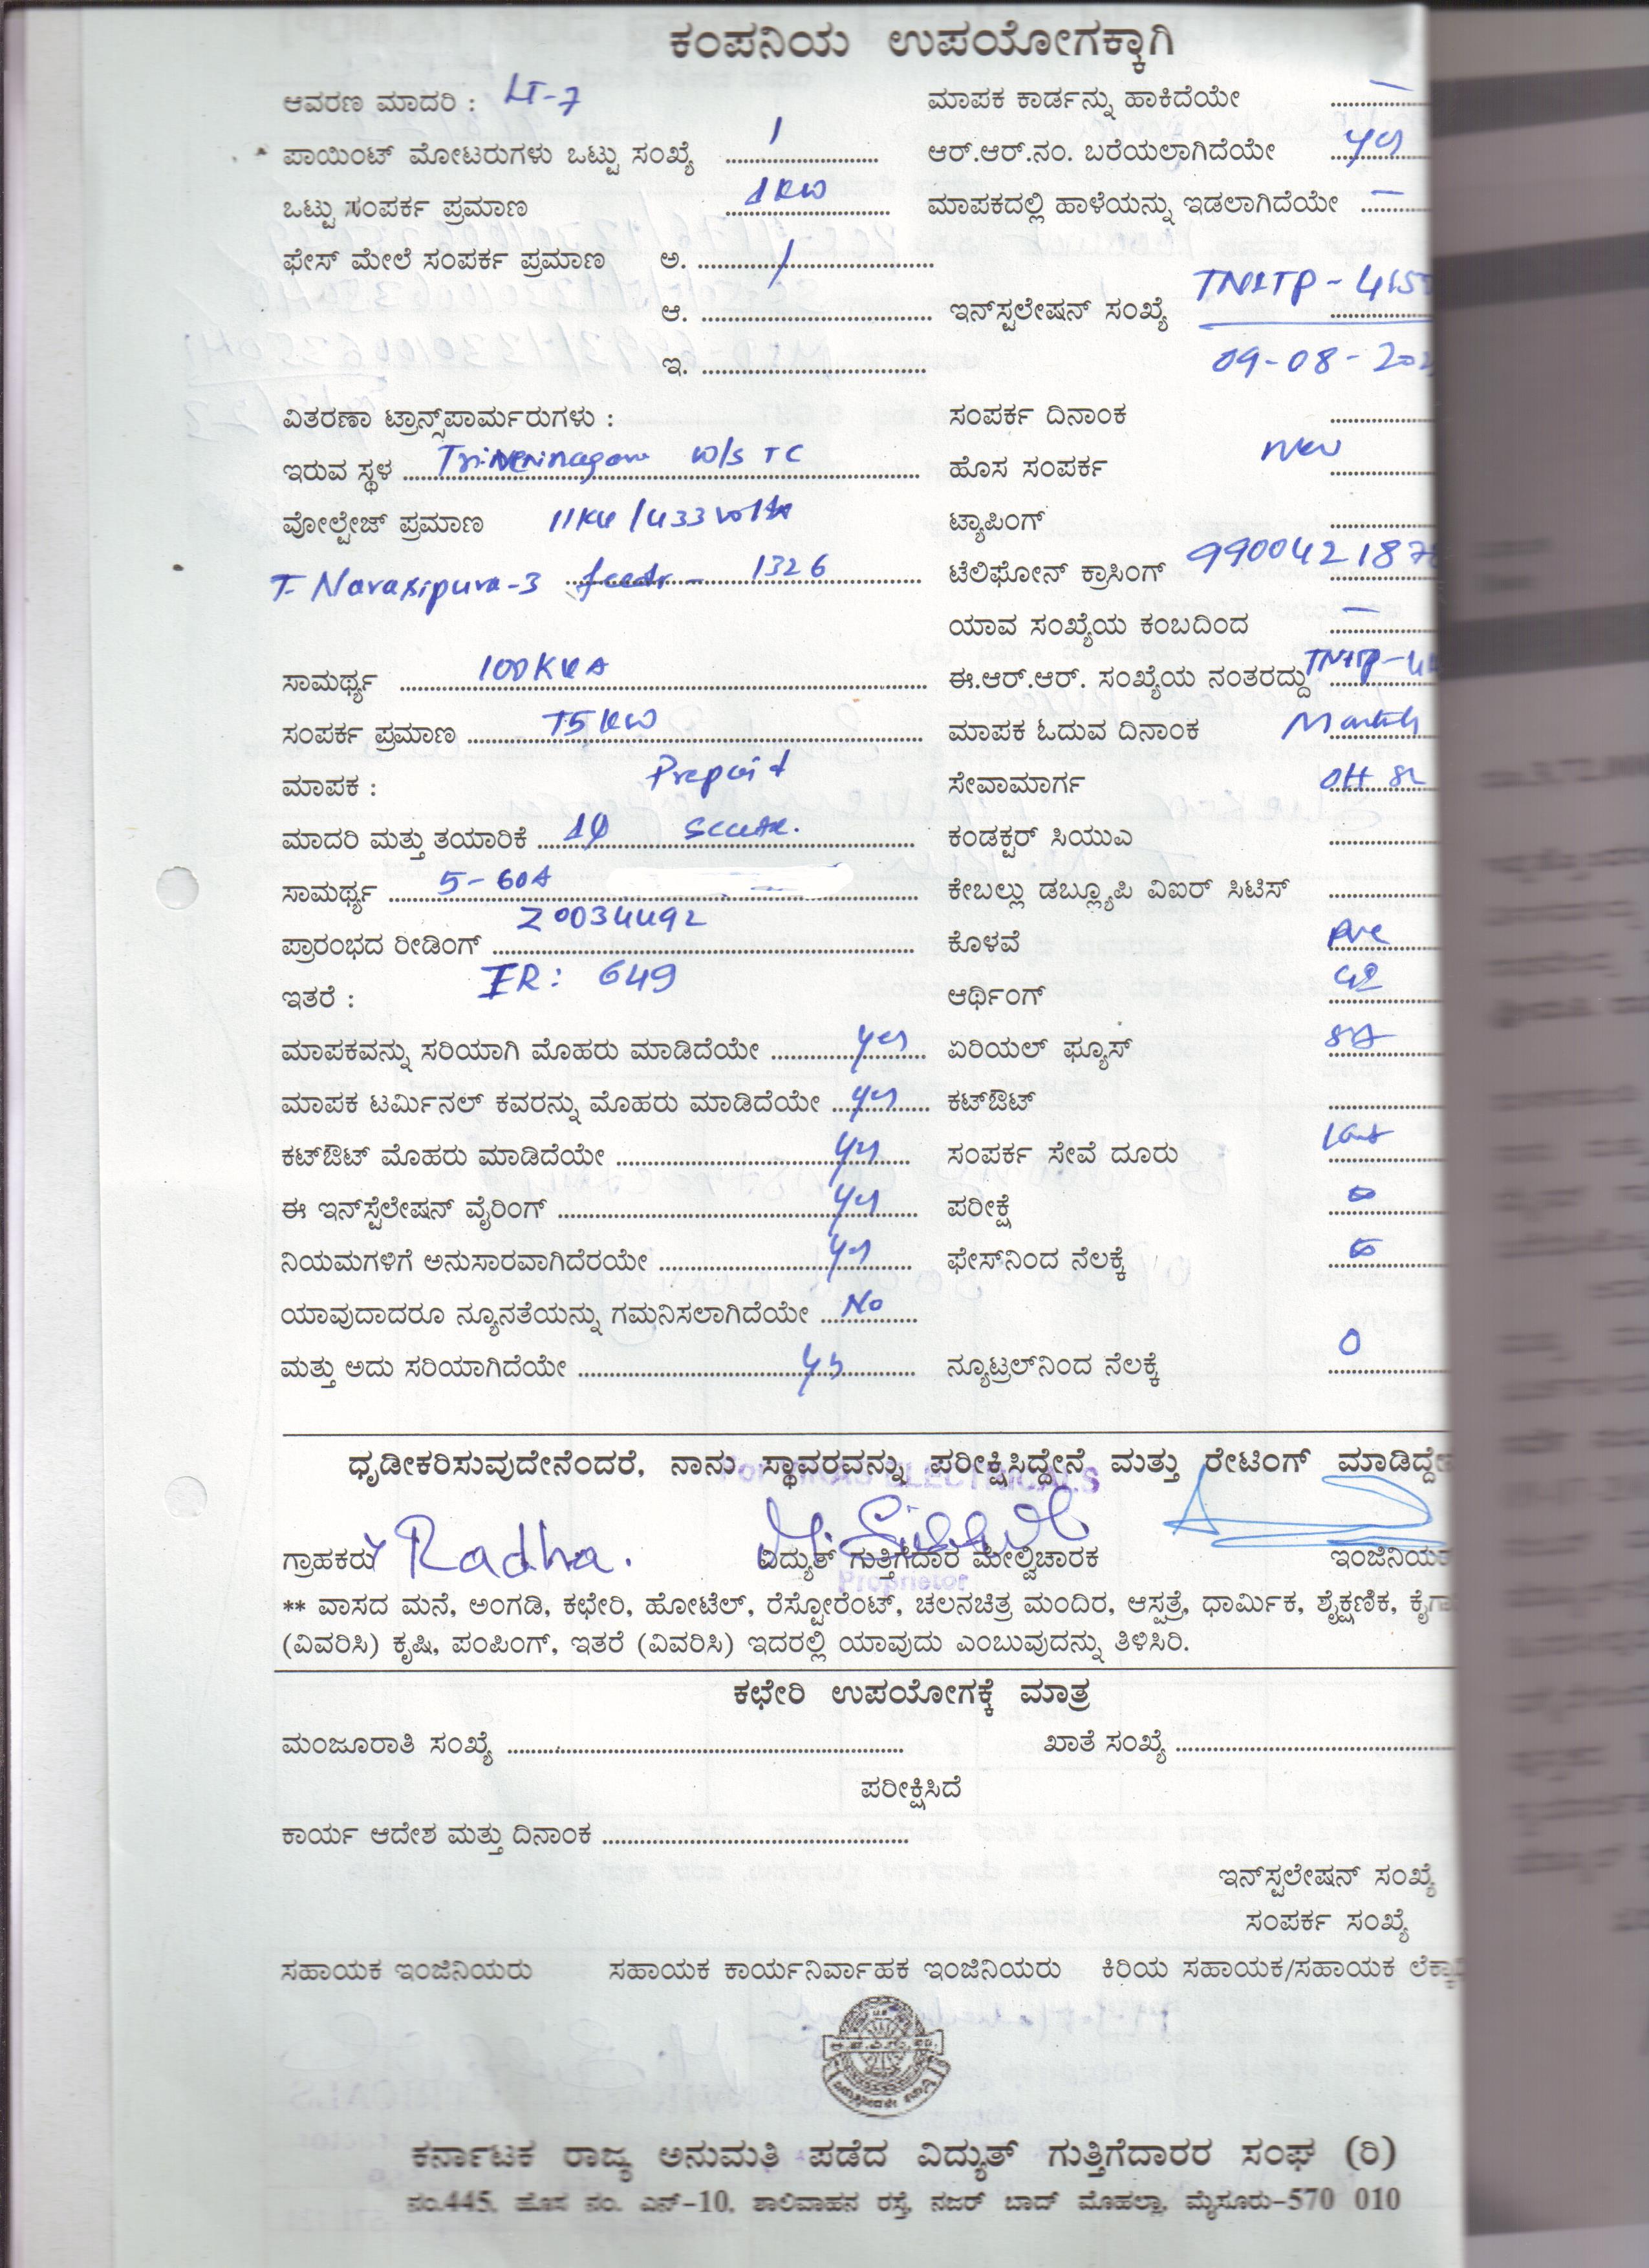 ಕಂಪನಿಯ ಉಪಯೋಗಕ್ಕಾಗಿ
ಆವರಣ ಮಾದರಿ : LT-7 ಮಾಪಕ ಕಾರ್ಡನ್ನು ಹಾಕಿದೆಯೇ —
ಪಾಯಿಂಟ್ ಮೋಟರುಗಳು ಒಟ್ಟು ಸಂಖ್ಯೆ 1 ಆರ್.ಆರ್.ನಂ. ಬರೆಯಲಾಗಿದೆಯೇ yes
ಒಟ್ಟು ಸಂಪರ್ಕ ಪ್ರಮಾಣ 1KW ಮಾಪಕದಲ್ಲಿ ಹಾಳೆಯನ್ನು ಇಡಲಾಗಿದೆಯೇ —
ಫೇಸ್ ಮೇಲೆ ಸಂಪರ್ಕ ಪ್ರಮಾಣ ಅ. /
ಆ. ಇನ್‌ಸ್ಟಲೇಷನ್ ಸಂಖ್ಯೆ TNLTP-415
ಇ. 09-08-202
ವಿತರಣಾ ಟ್ರಾನ್ಸ್‌ಪಾರ್ಮರುಗಳು : ಸಂಪರ್ಕ ದಿನಾಂಕ
ಇರುವ ಸ್ಥಳ Triveninagara W/s TC ಹೊಸ ಸಂಪರ್ಕ new
ವೋಲ್ಟೇಜ್ ಪ್ರಮಾಣ 11KV/433 volts ಟ್ಯಾಪಿಂಗ್
T. Narasipura-3 feeder - 1326 ಟೆಲಿಫೋನ್ ಕ್ರಾಸಿಂಗ್ 990042187
ಯಾವ ಸಂಖ್ಯೆಯ ಕಂಬದಿಂದ —
ಸಾಮರ್ಥ್ಯ 100KVA ಈ.ಆರ್.ಆರ್. ಸಂಖ್ಯೆಯ ನಂತರದ್ದು TNLTP-4
ಸಂಪರ್ಕ ಪ್ರಮಾಣ 75KW ಮಾಪಕ ಓದುವ ದಿನಾಂಕ
ಮಾಪಕ : Prepaid ಸೇವಾಮಾರ್ಗ OH
ಮಾದರಿ ಮತ್ತು ತಯಾರಿಕೆ 1φ ಕಂಡಕ್ಟರ್ ಸಿಯುಎ
ಸಾಮರ್ಥ್ಯ 5-60A ಕೇಬಲ್ಲು ಡಬ್ಲ್ಯೂಪಿ ವಿಐರ್ ಸಿಟಿಸ್
20034492
ಪ್ರಾರಂಭದ ರೀಡಿಂಗ್ ಕೊಳವೆ PVC
ಇತರೆ : IR: 649 ಆರ್ಥಿಂಗ್
ಮಾಪಕವನ್ನು ಸರಿಯಾಗಿ ಮೊಹರು ಮಾಡಿದೆಯೇ yes ಏರಿಯಲ್ ಫ್ಯೂಸ್
ಮಾಪಕ ಟರ್ಮಿನಲ್ ಕವರನ್ನು ಮೊಹರು ಮಾಡಿದೆಯೇ yes ಕಟ್‌ಔಟ್
ಕಟ್‌ಔಟ್ ಮೊಹರು ಮಾಡಿದೆಯೇ yes ಸಂಪರ್ಕ ಸೇವೆ ದೂರು
ಈ ಇನ್‌ಸ್ಟೆಲೇಷನ್ ವೈರಿಂಗ್ yes ಪರೀಕ್ಷೆ
ನಿಯಮಗಳಿಗೆ ಅನುಸಾರವಾಗಿದೆರಯೇ yes ಫೇಸ್‌ನಿಂದ ನೆಲಕ್ಕೆ
ಯಾವುದಾದರೂ ನ್ಯೂನತೆಯನ್ನು ಗಮನಿಸಲಾಗಿದೆಯೇ No
ಮತ್ತು ಅದು ಸರಿಯಾಗಿದೆಯೇ yes ನ್ಯೂಟ್ರಲ್‌ನಿಂದ ನೆಲಕ್ಕೆ 0
ಧೃಡೀಕರಿಸುವುದೇನೆಂದರೆ, ನಾನು ಸ್ಥಾವರವನ್ನು ಪರೀಕ್ಷಿಸಿದ್ದೇನೆ ಮತ್ತು ರೇಟಿಂಗ್ ಮಾಡಿದ್ದೇ
ELECTRICALS
ಗ್ರಾಹಕರು Radha. ವಿದ್ಯುತ್ ಗುತ್ತಿಗೆದಾರ ಮೇಲ್ವಿಚಾರಕ ಇಂಜಿನಿಯ
Proprietor
** ವಾಸದ ಮನೆ, ಅಂಗಡಿ, ಕಛೇರಿ, ಹೋಟೆಲ್, ರೆಸ್ಟೋರೆಂಟ್, ಚಲನಚಿತ್ರ ಮಂದಿರ, ಆಸ್ಪತ್ರೆ, ಧಾರ್ಮಿಕ, ಶೈಕ್ಷಣಿಕ, ಕೈಗಾ
(ವಿವರಿಸಿ) ಕೃಷಿ, ಪಂಪಿಂಗ್, ಇತರೆ (ವಿವರಿಸಿ) ಇದರಲ್ಲಿ ಯಾವುದು ಎಂಬುವುದನ್ನು ತಿಳಿಸಿರಿ.
ಕಛೇರಿ ಉಪಯೋಗಕ್ಕೆ ಮಾತ್ರ
ಮಂಜೂರಾತಿ ಸಂಖ್ಯೆ ಖಾತೆ ಸಂಖ್ಯೆ
ಪರೀಕ್ಷಿಸಿದೆ
ಕಾರ್ಯ ಆದೇಶ ಮತ್ತು ದಿನಾಂಕ
ಇನ್‌ಸ್ಟಲೇಷನ್ ಸಂಖ್ಯೆ
ಸಂಪರ್ಕ ಸಂಖ್ಯೆ
ಸಹಾಯಕ ಇಂಜಿನಿಯರು ಸಹಾಯಕ ಕಾರ್ಯನಿರ್ವಾಹಕ ಇಂಜಿನಿಯರು ಕಿರಿಯ ಸಹಾಯಕ/ಸಹಾಯಕ
ಕರ್ನಾಟಕ ರಾಜ್ಯ ಅನುಮತಿ ಪಡೆದ ವಿದ್ಯುತ್ ಗುತ್ತಿಗೆದಾರರ ಸಂಘ (ರಿ)
ನಂ.445, ಹೊಸ ನಂ. ಎನ್-10, ಶಾಲಿವಾಹನ ರಸ್ತೆ, ನಜರ್ ಬಾದ್ ಮೊಹಲ್ಲಾ, ಮೈಸೂರು-570 010